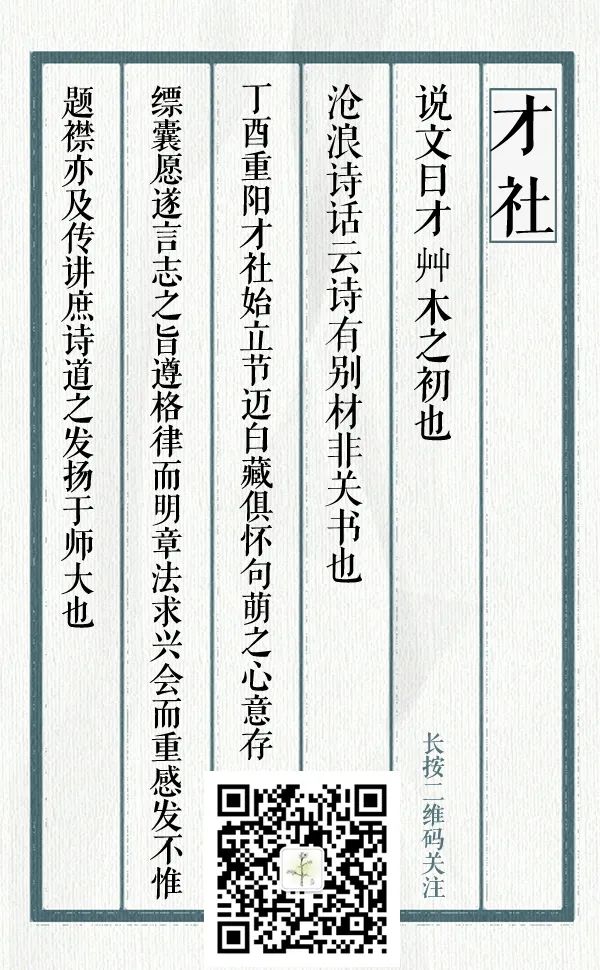 才社
说文曰才艸木之初也
长按二维码关注
沧浪诗话云诗有别材非关书也
丁酉重阳才社始立节迈白藏俱怀句萌之心意存
缥囊愿遂言志之旨遵格律而明章法求兴会而重感发不惟
题襟亦及传讲庶诗道之发扬于师大也